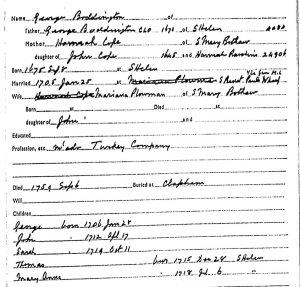 Name George Boddington of
Father George Boddington CLO 1670 of S Helen
Mother Hannah Cope of S Mary Bothaw
daughter of John Cope 1645 and Hannah
Born 1675 Sep 8 at S Helen
Married 1705 Jan 25 at Mariana Plowman S Benet Pauls Wharf
Wife Hannah Cope Mariana Plowman of S Mary Bothaw
Born at Died at
daughter of John and
Educated
Profession, etc. Turkey Company
Died 1759 Sep 6 Buried at Clapham
Will
Children
George born 1706 Jan 28
John 1712 Apl 17
Sarah 1714 Oct 11
Thomas bur 1715 Dec 28 S Helen
Mary 1718 6 "